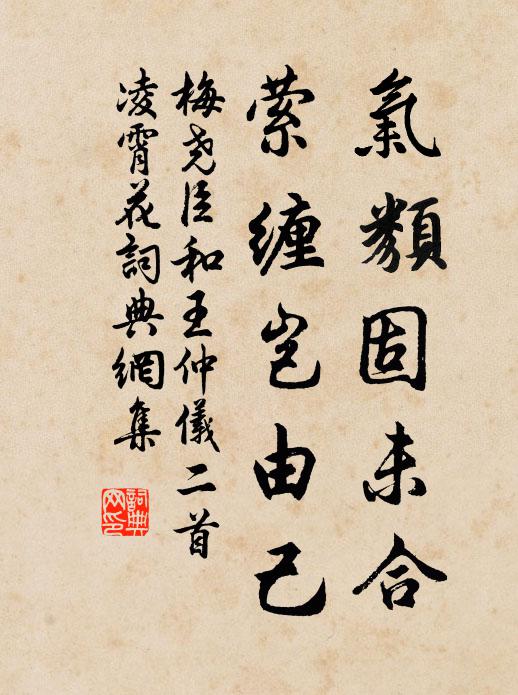 氣類固未合
縈纏豈由己
梅堯臣和王仲儀二首
凌霄花詞典網集
詞典
网印